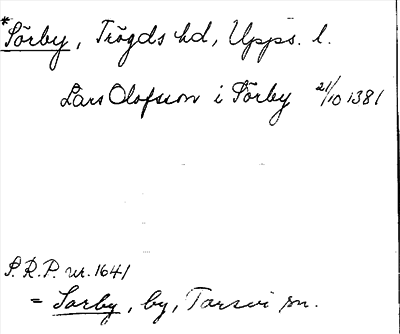 *Sörby, Trögds hd, Upps. l.
Lars Olofsson i Sörby 21/10 1381
S.R.P. nr. 1641
= Sorby, by, Torsvi sn.